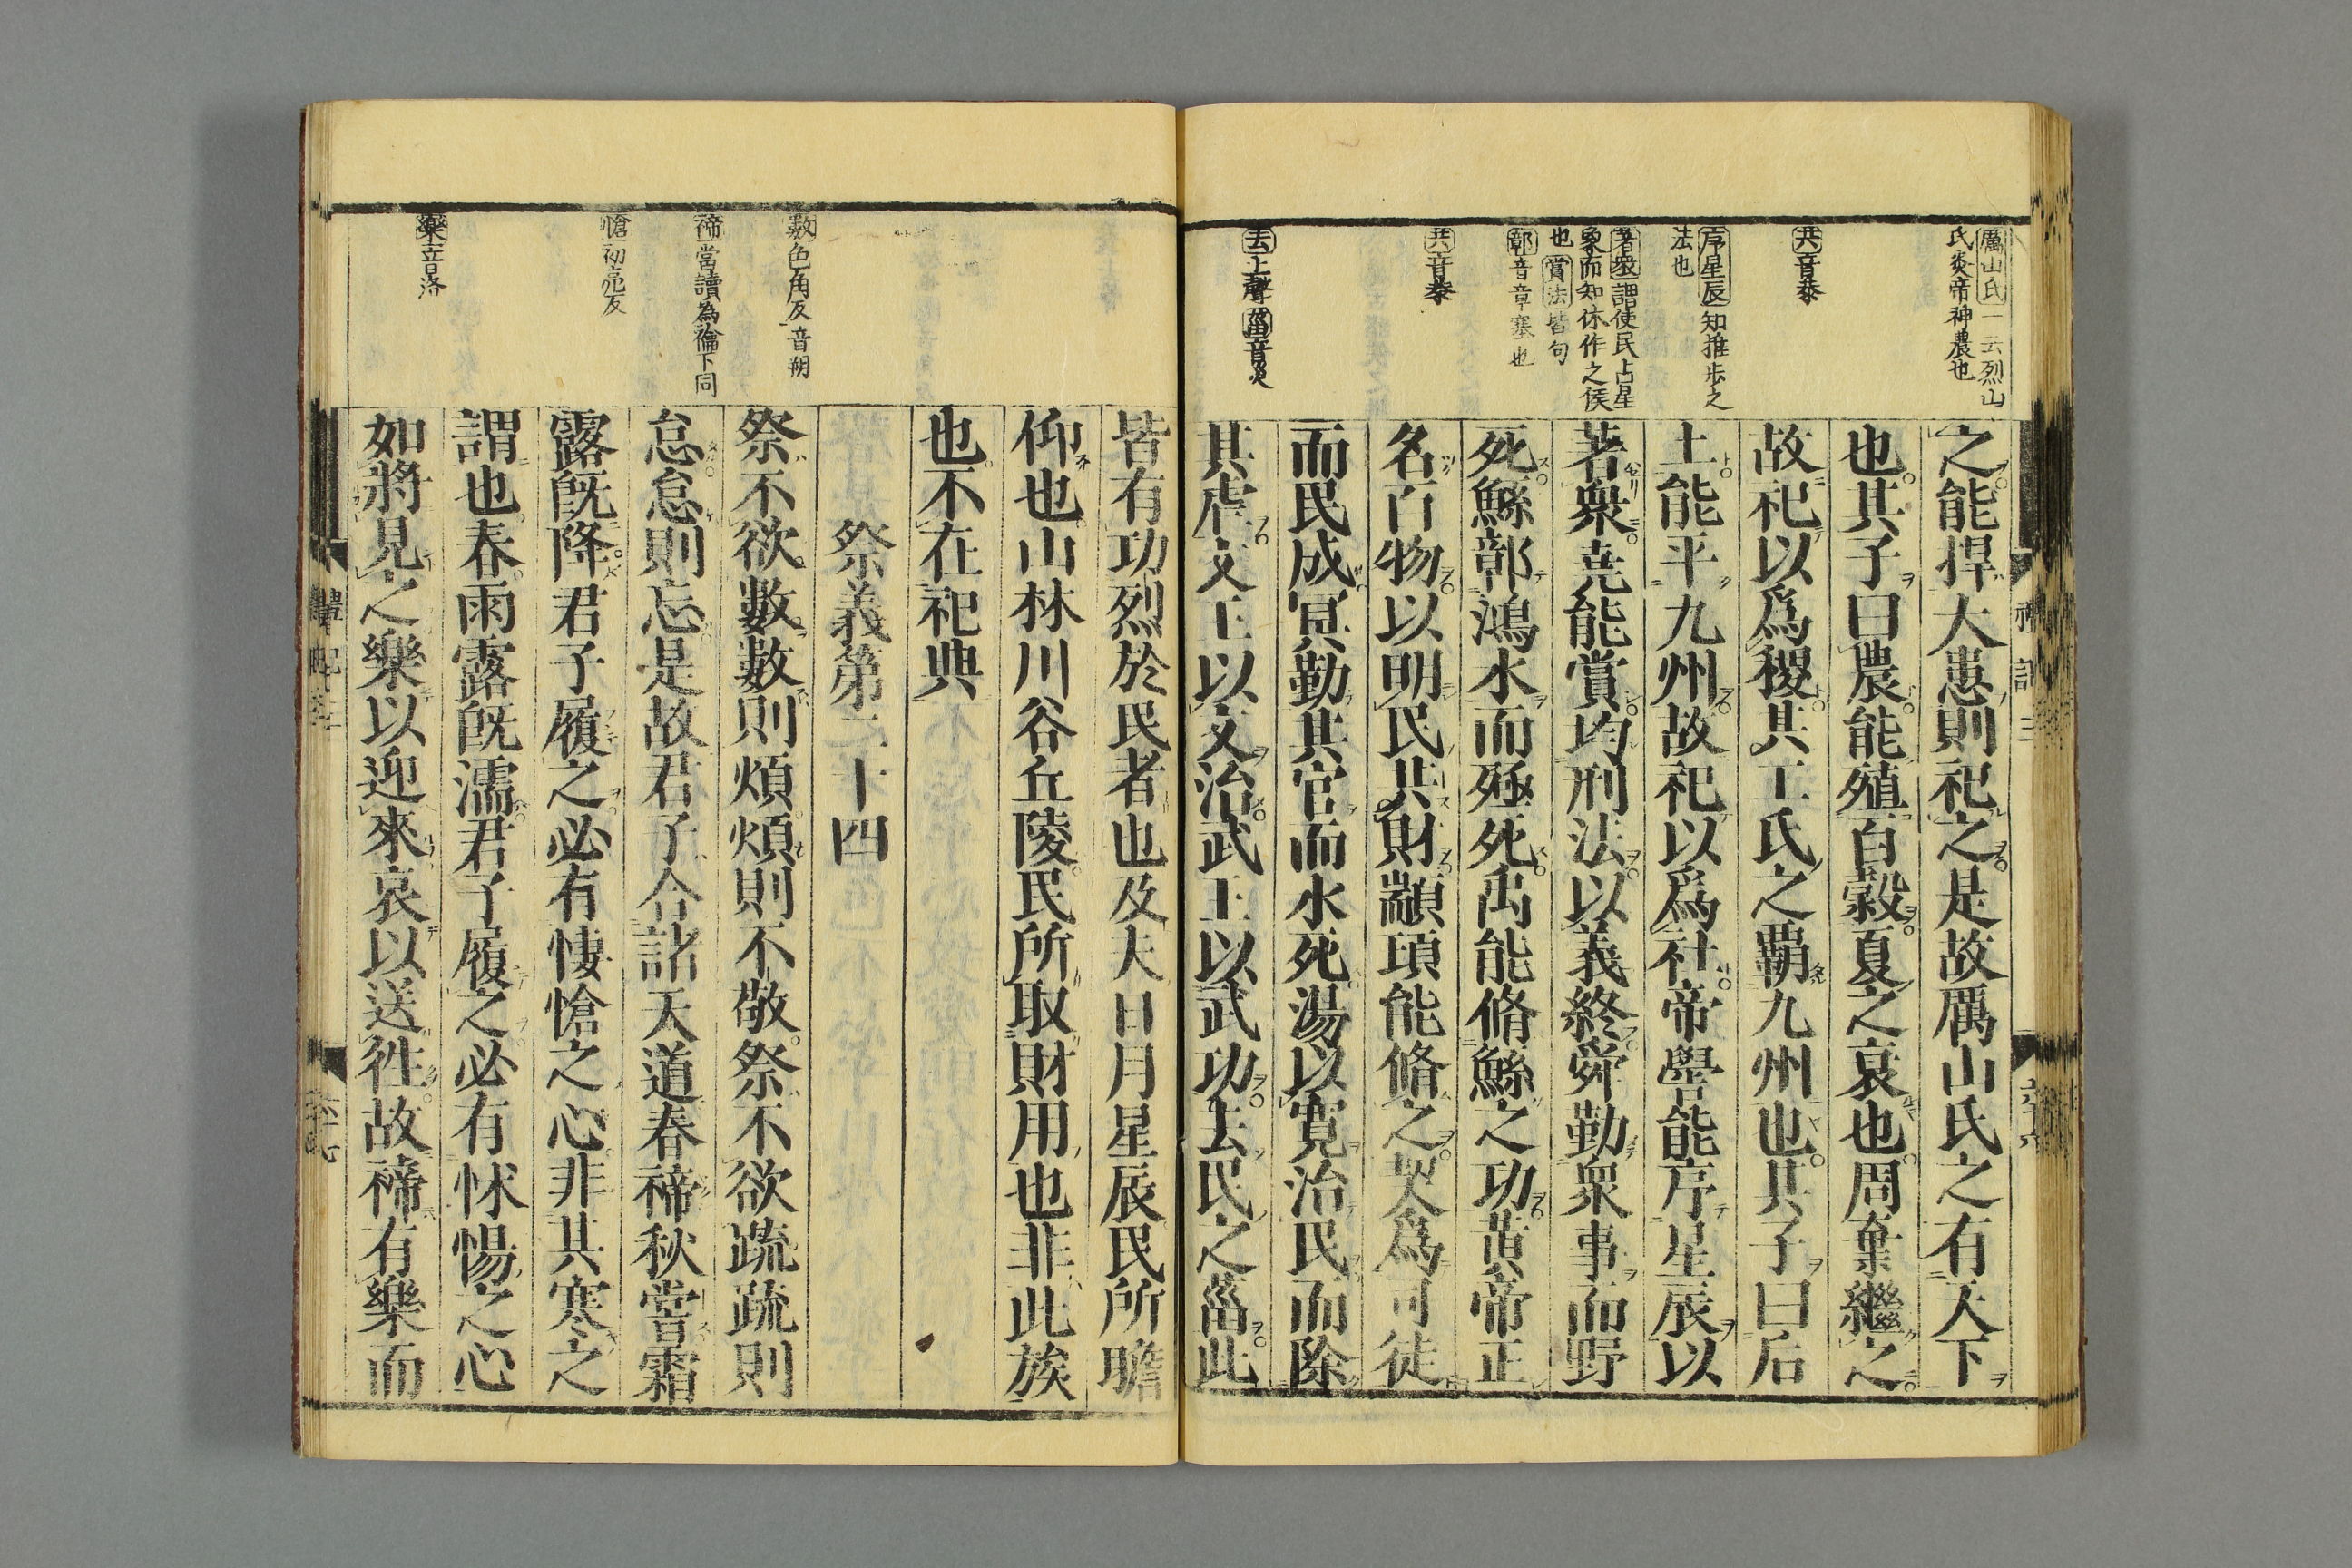 厲山氏一云烈山
氏炎帝神農也
共音恭
序星辰知推步之
法也
著衆謂使民占星
象而知休作之候
也賞法皆句
鄣音章塞也
共音恭
去上聲菑音災
之能捍大患則祀之是故厲山氏之有天下
也其子曰農能殖百穀夏之衰也周棄繼之
故祀以爲稷共工氏之覇九州也其子曰后
土能平九州故祀以爲社帝嚳能序星辰以
著衆堯能賞均刑法以義終舜勤衆事而野
死鯀鄣鴻水而殛死禹能脩鯀之功黄帝正
名百物以明民共財顓頊能脩之契爲司徒
而民成冥勤其官而水死湯以寬治民而除
其虐文王以文治武王以武功去民之菑此
禮記三
數色角反音朔
禘當讀為禴下同
愴初亮反
樂音洛
皆有功烈於民者也及夫日月星辰民所瞻
仰也山林川谷丘陵民所取財用也非此族
也不在祀典
祭義第二十四
祭不欲數數則煩煩則不敬祭不欲疏疏則
怠怠則忘是故君子合諸天道春禘秋嘗霜
露旣降君子履之必有悽愴之心非其寒之
謂也春雨露旣濡君子履之必有怵惕之心
如將見之樂以迎來哀以送徃故禘有樂而
禮記三